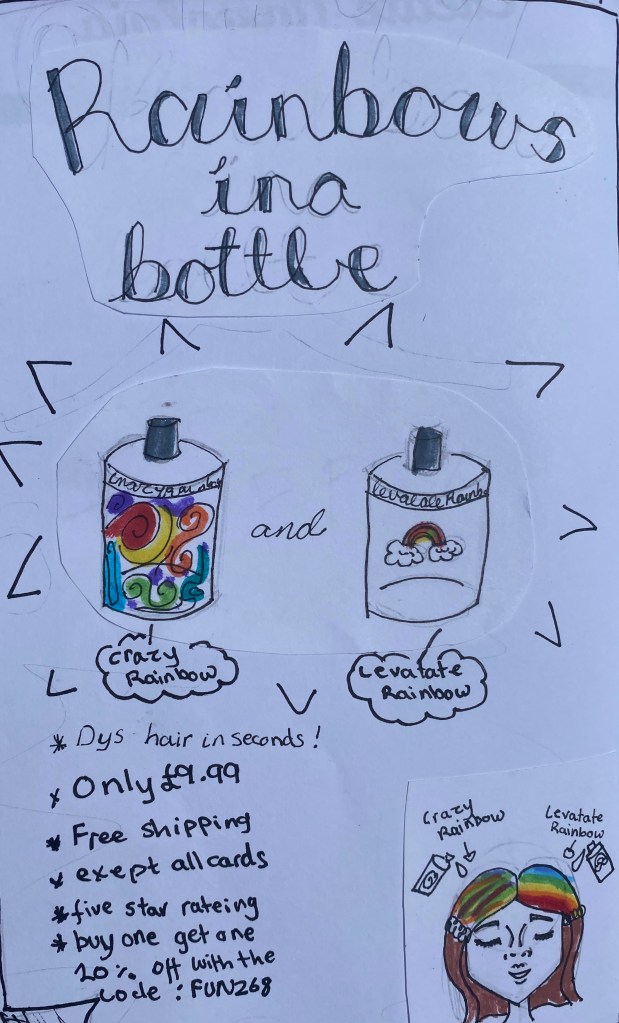 Rainbows
in a
bottle
crazy Rainbow
and
levatate Rainbo
crazy
Rainbow
Levatate
Rainbow
* Dys hair in seconds!
* Only £9.99
* Free shipping
* exept all cards
* five star rateing
* buy one get one
20% off with the
code : FUN268
crazy
Rainbow
Levatate
Rainbow